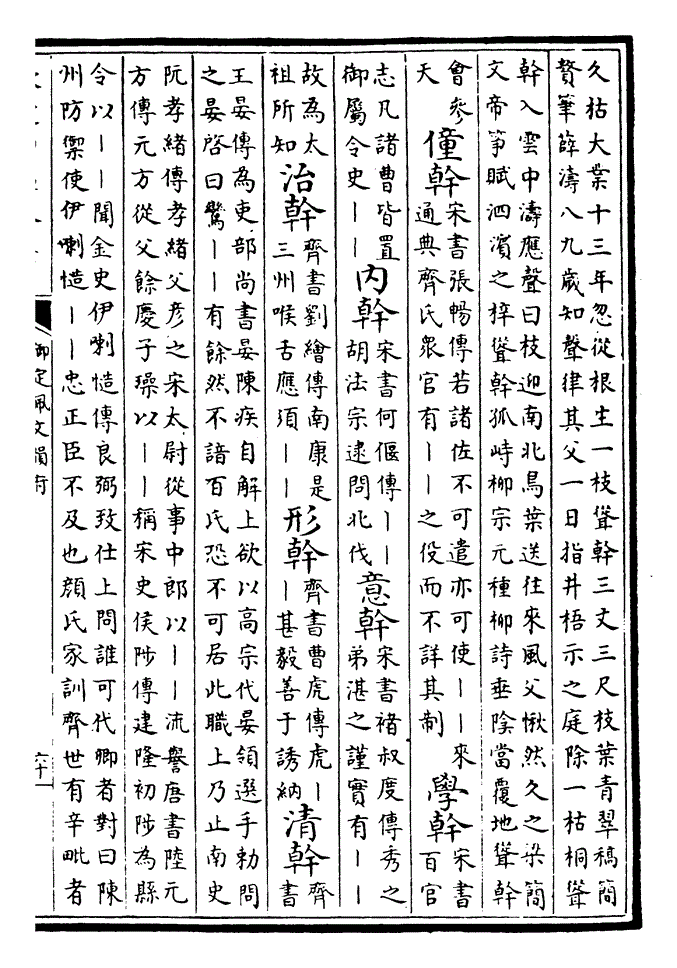 久枯大業十三年忽從根生一枝聳幹三丈三尺枝葉青翠稿簡
贅筆薛濤八九歲知聲律其父一日指井梧示之庭除一枯桐聳
幹入雲中濤應聲曰枝迎南北鳥葉送往來風父愀然久之梁簡
文帝箏賦泗濱之梓聳幹孤峙柳宗元種柳詩垂陰當覆地聳幹
會參
天
僮幹
宋書張暢傳若諸佐不可遣亦可使丨丨來
通典齊氏衆官有丨丨之役而不詳其制
學幹
宋書
百官
志凡諸曹皆置
御屬令史丨丨
內幹
宋書何偃傳丨丨
胡法宗逮問北伐
意幹
宋書褚叔度傳秀之
弟湛之謹實有丨丨
故為太
祖所知
治幹
齊書劉繪傳南康是
三州喉舌應須丨丨
形幹
齊書曹虎傳虎丨
丨甚毅善于誘納
清幹
齊
書
王晏傳為吏部尚書晏陳疾自解上欲以高宗代晏領選手勅問
之晏啓曰鸞丨丨有餘然不諳百氏恐不可居此職上乃止南史
阮孝緒傳孝緒父彥之宋太尉從事中郎以丨丨流譽唐書陸元
方傳元方從父餘慶子璪以丨丨稱宋史侯陟傳建隆初陟為縣
令以丨丨聞金史伊喇慥傳良弼致仕上問誰可代卿者對曰陳
州防禦使伊喇慥丨丨忠正臣不及也顏氏家訓齊世有辛毗者
御定佩文韻府